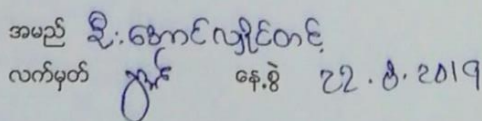 အမည် ဦးအောင်လှိုင်တင့်
လက်မှတ် နေ့စွဲ 22.8.2019